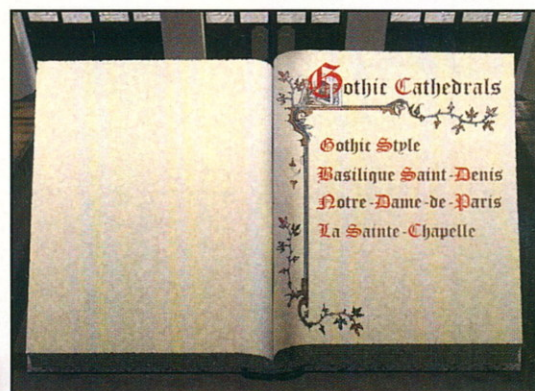 Gothic Cathedrals
Gothic Style
Basilique Saint-Denis
Notre-Dame-de-Paris
La Sainte-Chapelle